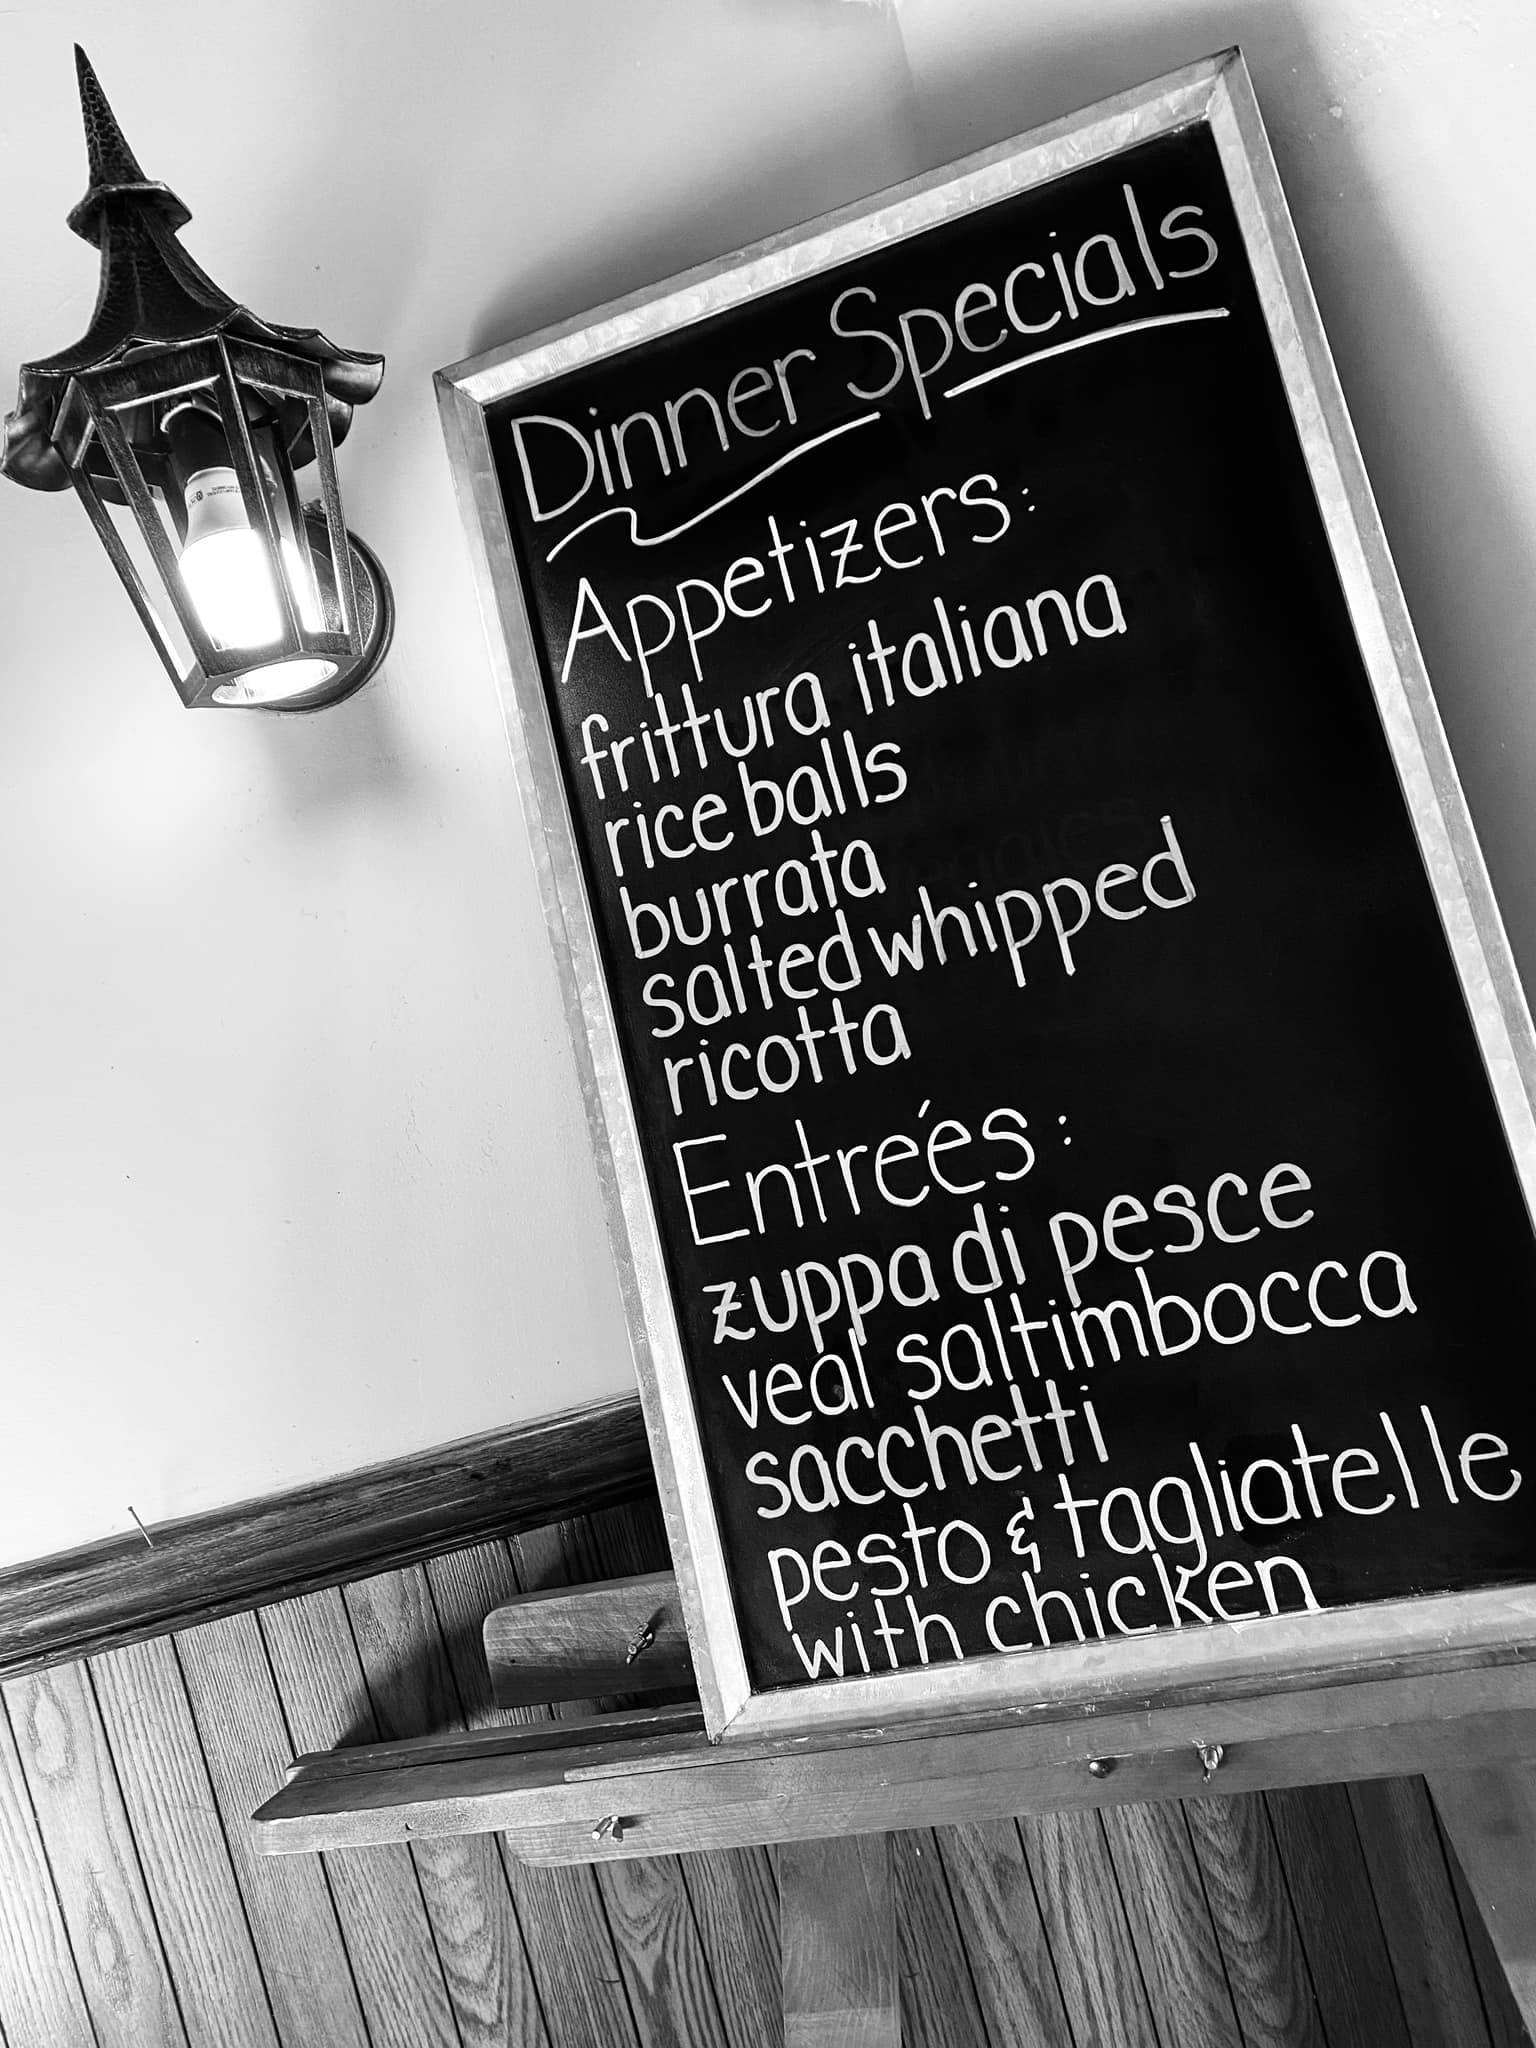 Dinner Specials
Appetizers:
frittura italiana
rice balls
burrata
salted whipped
ricotta
Entreés:
zuppa di pesce
veal saltimbocca
sacchetti
pesto & tagliatelle
with chicken